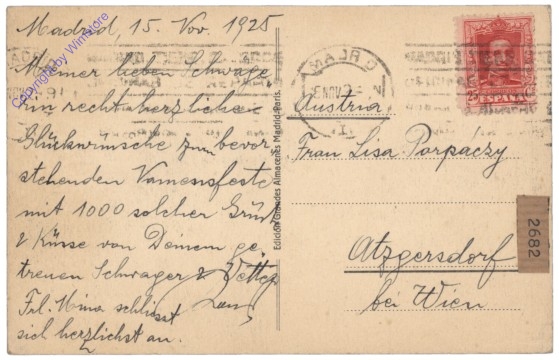 Madrid, 15. Nov. 1925
Meiner lieben Schwäge
rin recht herzliche
Glückwünsche zum bevor
stehenden Namensfeste
mit 1000 solcher Grüße
& Küsse von Deinem ge
treuen Schwager & Vetter
Frl. Mina schliesst
sich herzlichst an.
Copyright by Winstore
Edición Grandes Almacenes Madrid-Paris.
MADRID
NOV
25
ESPAÑA
Austria
Frau Lisa Porpaczy
Atzgersdorf
bei Wien
2682